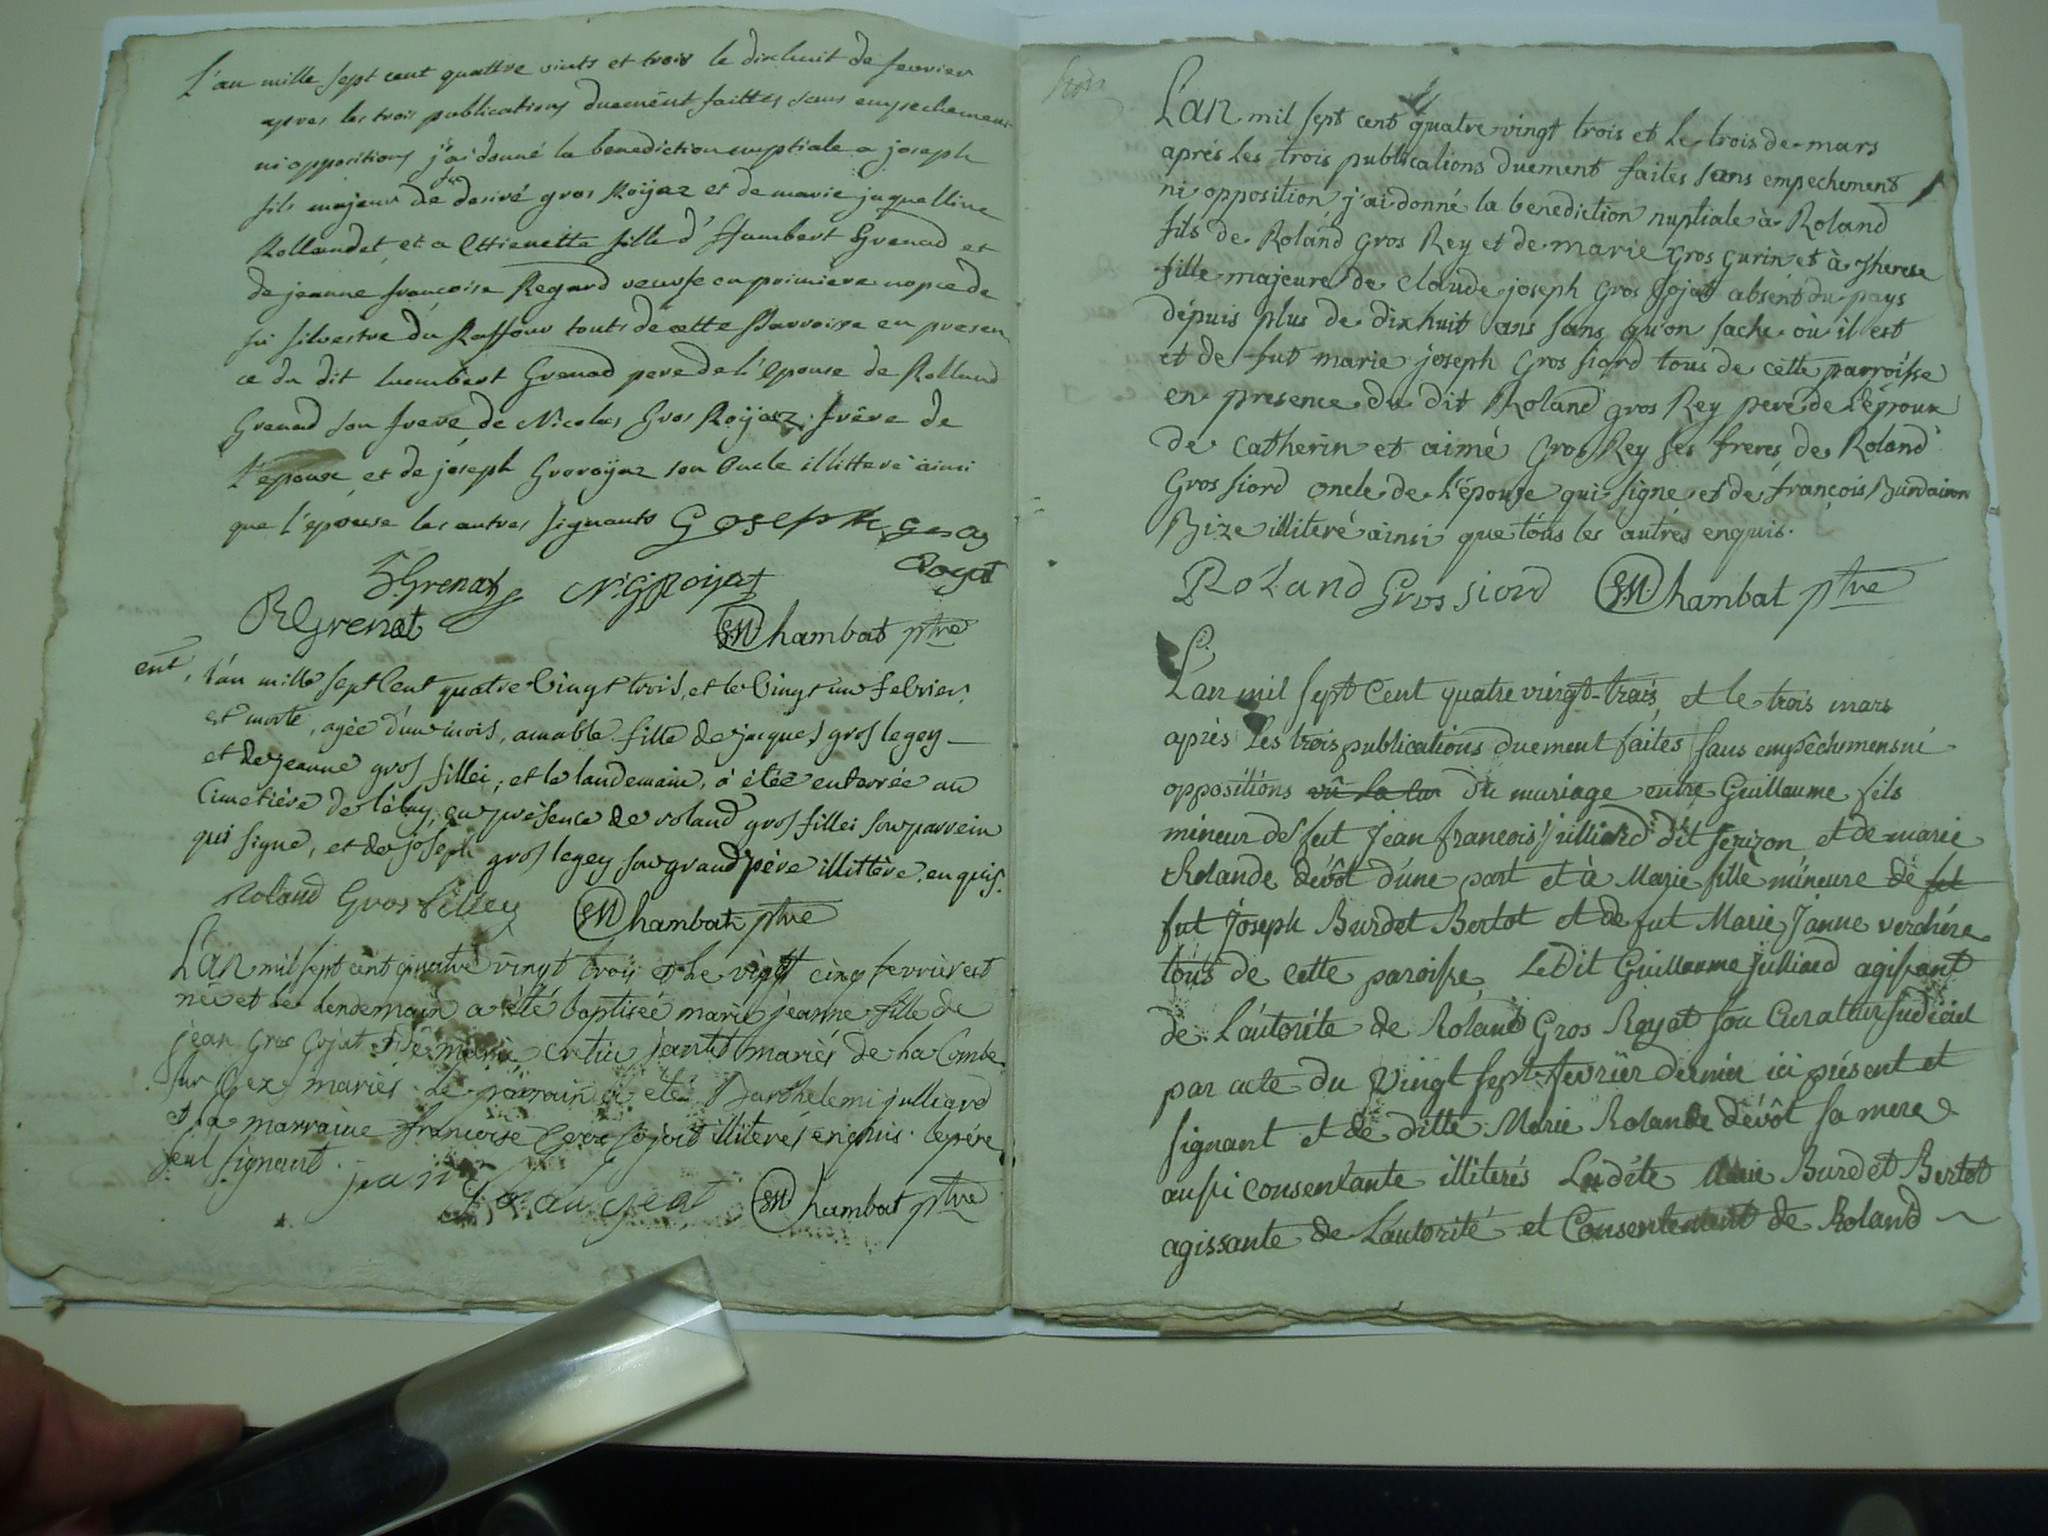 L'an mille sept cent quattre vints et trois le dixhuit de fevrier
apres les trois publications duement faittes sans empechement
ni oppositions j'ai donné la benediction nuptiale a joseph
fils majeur de feu desiré gros Roÿaz et de marie jaquelline
Rollandet et a Ettienette fille d'Humbert Grenad et
de jeanne francoise Regard veuve en primiere nopce de
silvestre du Raffour touts de cette Parroise en presen
ce du dit humbert Grenad pere de l'epouse de Rolland
Grenad son frere de Nicolas Gros Roÿaz frêre de
l'epoux et de joseph Groroÿaz son Oncle illitteré ainsi
que l'epouse les autres signants Goseph gros
Royat
hGrenat N.GRoijat
RGrenat Chambat ptre
ent, L'an mille sept Cent quatre Vingt trois, et le Vingt un febrier
est morte, agée d'un mois, amable fille de jacques gros legey
et de jeanne gros fillei; et le landemain, a étée enterrée au
Cimetiére de lélay; en présence de roland gros fillei son parrein
qui signe, et de joseph gros legey son grand pére illittére enquis.
Roland Gros filley Chambat ptre
L'an mil sept cent quatre vingt trois et le vingt cinq fevrier est
née et le lendemain a été baptiseé marie jeanne fille de
jean Gros Gojat et de marie cretin jantet mariés de La Combe
sur Gex mariés le parrain a eté Barthelemi julliard
et la marraine francoise Gros Gojat illiterés enquis. le pére
seul signant. jean
Chambat ptre
L'an mil sept cent quatre vingt trois et le trois de mars
aprés les trois publications duement faites sans empechement
ni opposition j'ai donné la benediction nuptiale à Roland
fils de Roland Gros Rey et de marie Gros Gurin et à Therese
fille majeure de Claude joseph Gros Gojat absent du pays
dépuis plus de dixhuit ans sans qu'on sache où il est
et de fut marie joseph Gros siord tous de cette parroisse
en presence du dit Roland gros Rey pere de l'époux
de Catherin et aimé Gros Rey ses freres de Roland
Gros siord oncle de l'épouse qui signe et de françois Burdairon
Bize illiteré ainsi que tous les autres enquis.
Roland Gros siord Chambat ptre
L'an mil sept Cent quatre vingt-trois, et le trois mars
aprés les trois publications duement faites sans empêchemens ni
oppositions du mariage entre Guillaume fils
mineur de fut Jean francois julliard dit serizon et de marie
Rolande dévôt d'une part et à Marie fille mineure de fut
fut Joseph Burdet Bertot et de fut Marie Janne verchére
tous de cette paroisse Ledit Guillaume Julliard agissant
de L'autorite de Roland Gros Royat son Curateur Judiciel
par acte du Vingt sept fevrier dernier ici présent et
signant et de ditte Marie Rolande dévôt sa mere
aussi consentante illiterés Ladite Marie Burdet Bertot
agissante de L'autorité et Consentement de Roland